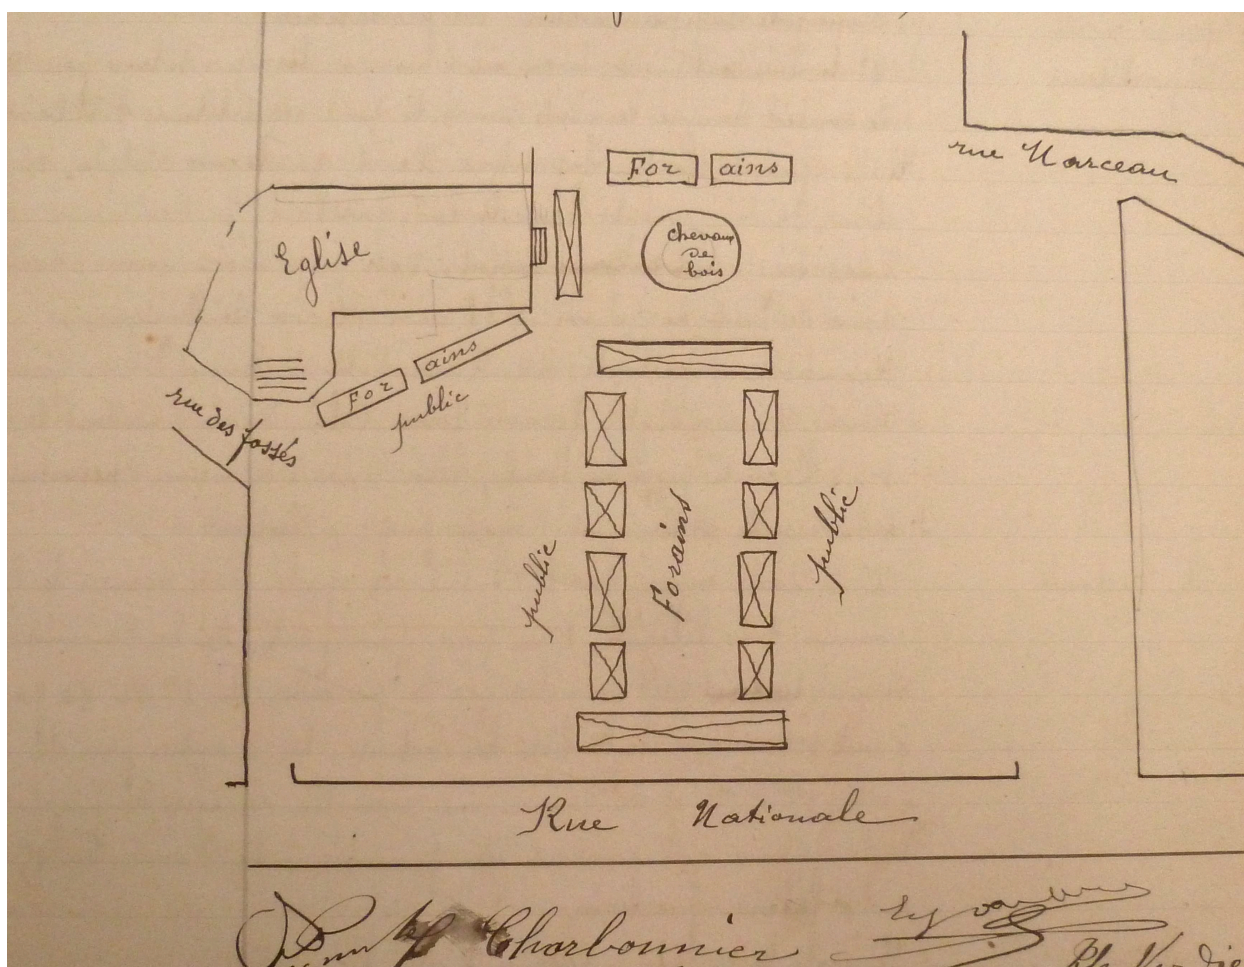 For ains
rue Marceau
Eglise
chevaux
de
bois
For ains
public
rue des fossés
public
Forains
public
Rue Nationale
Charbonnier